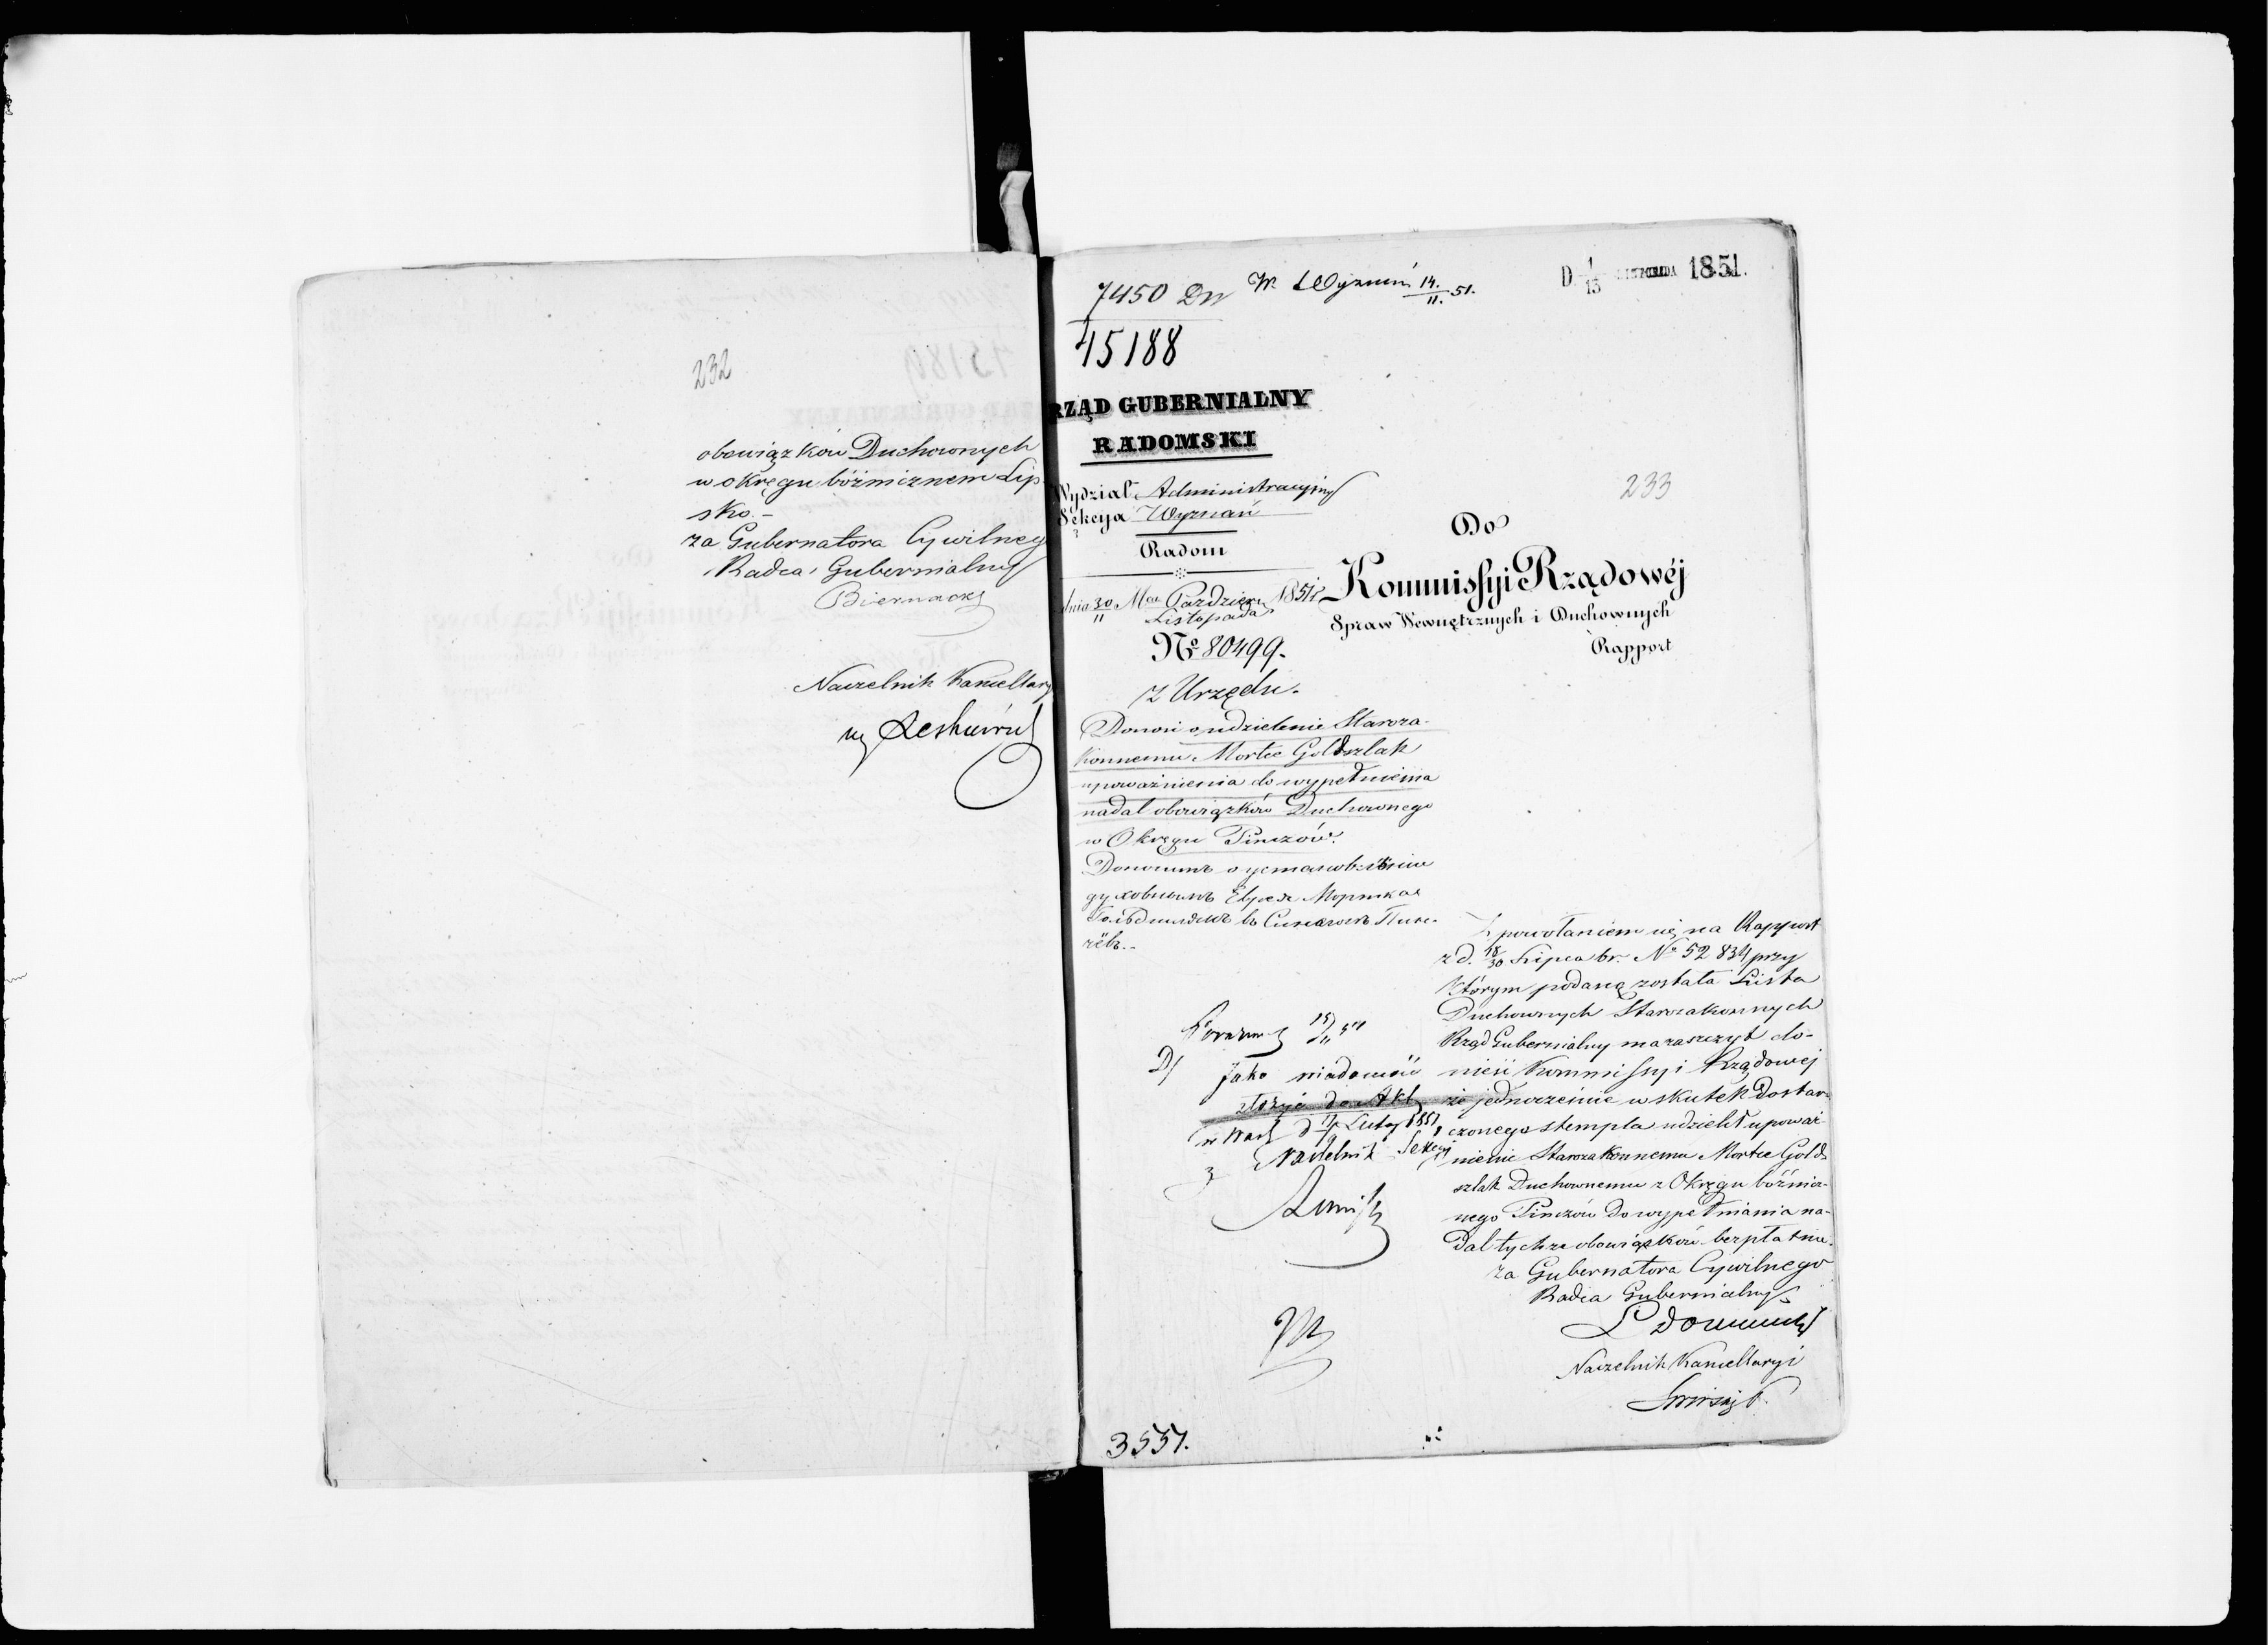 232
obowiązków Duchownych
w okręgu bóżnicznem Lip-
sko.-
za Gubernatora Cywilneg
Radca Gubernialny
Biernacki
Naczelnik Kancellary
7450 Dn W. Wyznań 14./11. 51.
D 1/13 LISTOPADA 1851.
15188
RZĄD GUBERNIALNY
RADOMSKI
Wydział Administracyjny
Sekcya Wyznań
Radom
dnia 30/11 Mca Paździer./Listopada 1851 r
No 80499.
z Urzędu.
Donosi o udzielenie Staroza-
konnemu Mortce Goldszlak
upoważnienia do wypełnienia
nadal obowiązków Duchownego
w Okręgu Pinczów.
233
Do
Kommissyi Rządowéj
Spraw Wewnętrznych i Duchownych
Rapport
Z powołaniem się na Rapport
z d. 18/30 Lipca br. No 52834 przy
którym podaną została Lista
Duchownych Starozakonnych
Rząd Gubernialny ma zaszczyt do-
nieść Kommissyi Rządowej
że jednocześnie w skutek dostar-
czonego stempla udzielił upoważ-
nienie Starozakonnemu Mortce Gold-
szlak Duchownemu z Okręgu bóżnicz-
nego Pinczów do wypełniania na-
dal tychże obowiązków bezpłatnie.
za Gubernatora Cywilnego
Radca Gubernialny
Naczelnik Kancellaryi
D/
Jako wiadomość
złożyć do Akt
Naczelnik Sekcyi
3557.